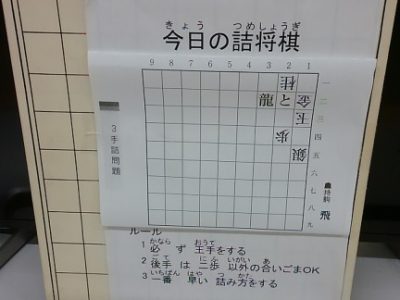 きょう つめしょうぎ
今日の詰将棋
9 8 7 6 5 4 3 2 1
桂 一
龍 と 金 二
玉 三
歩 四
銀 五
六
七
八
九
3手詰問題
持駒 飛
ルール
かなら おうて
1 必ず王手をする
ごて にふ いがい あ
2 後手は二歩以外の合いごまOK
いちばん はや つ かた
3 一番早い詰み方をする